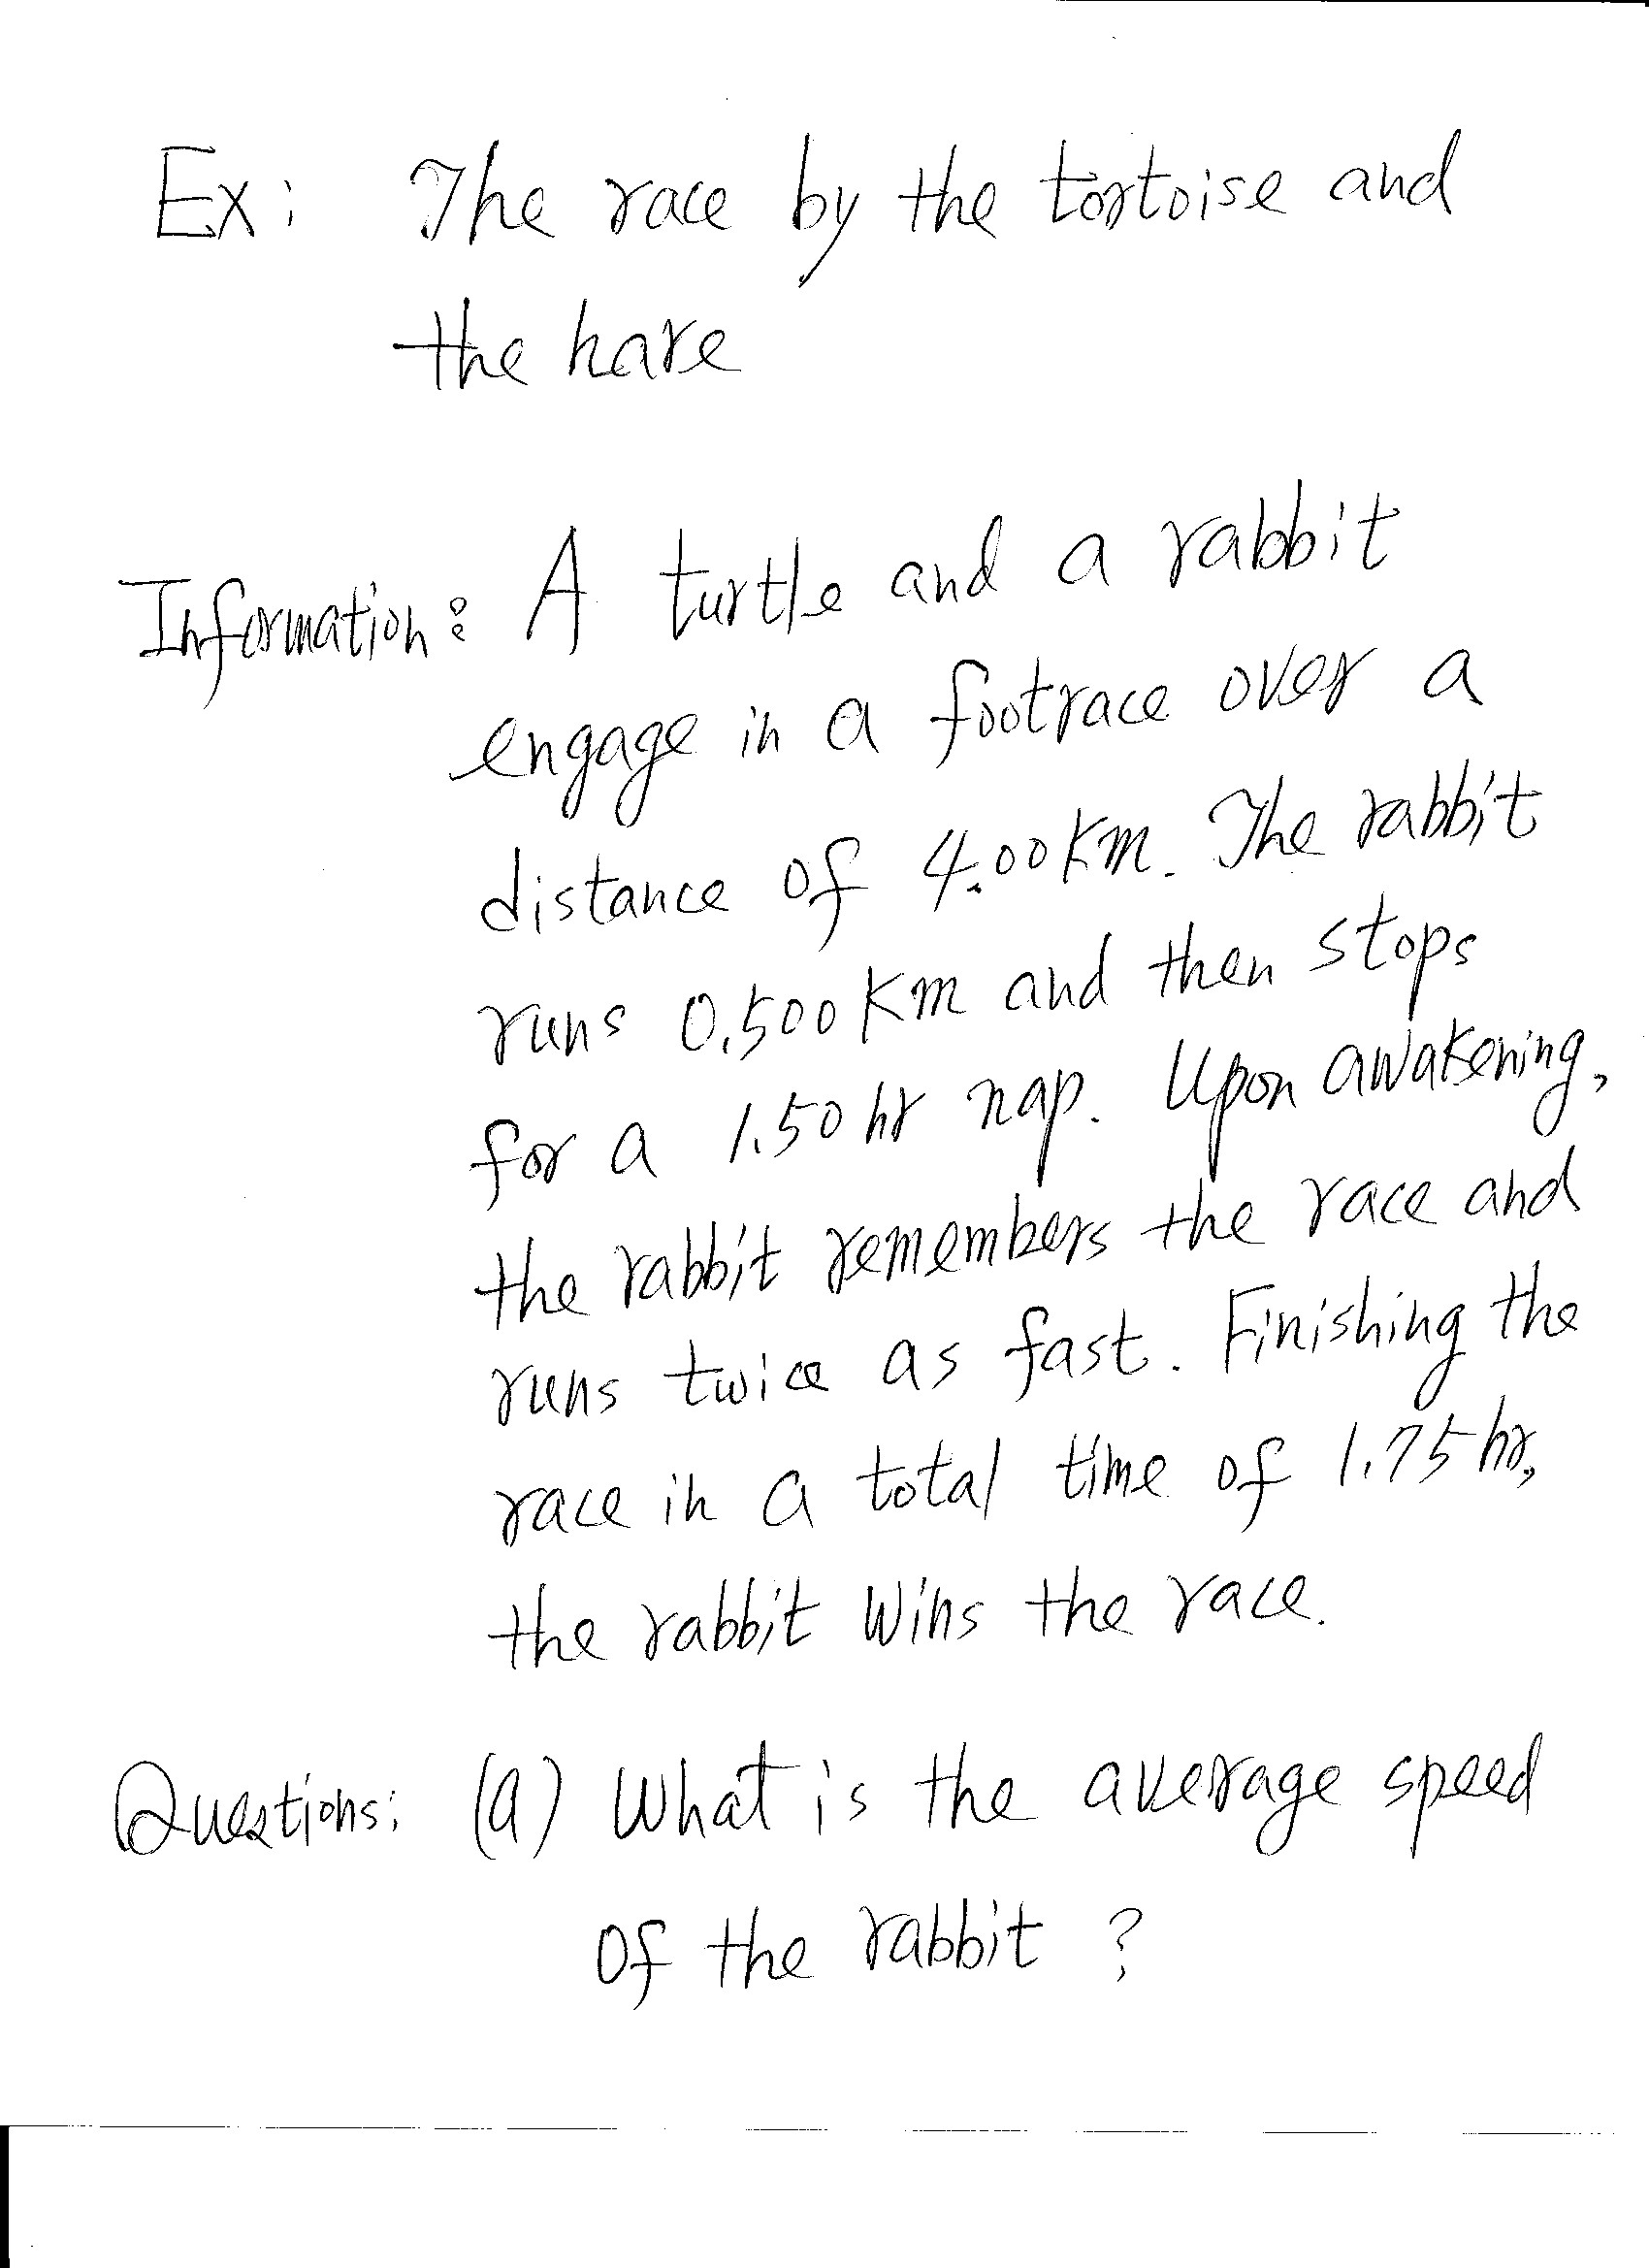 Ex: The race by the tortoise and
the hare
Information: A turtle and a rabbit
engage in a footrace over a
distance of 4.00 Km. The rabbit
runs 0.500 Km and then stops
for a 1.50 hr nap. Upon awakening,
the rabbit remembers the race and
runs twice as fast. Finishing the
race in a total time of 1.75 hr,
the rabbit wins the race.
Questions: (a) What is the average speed
of the rabbit ?